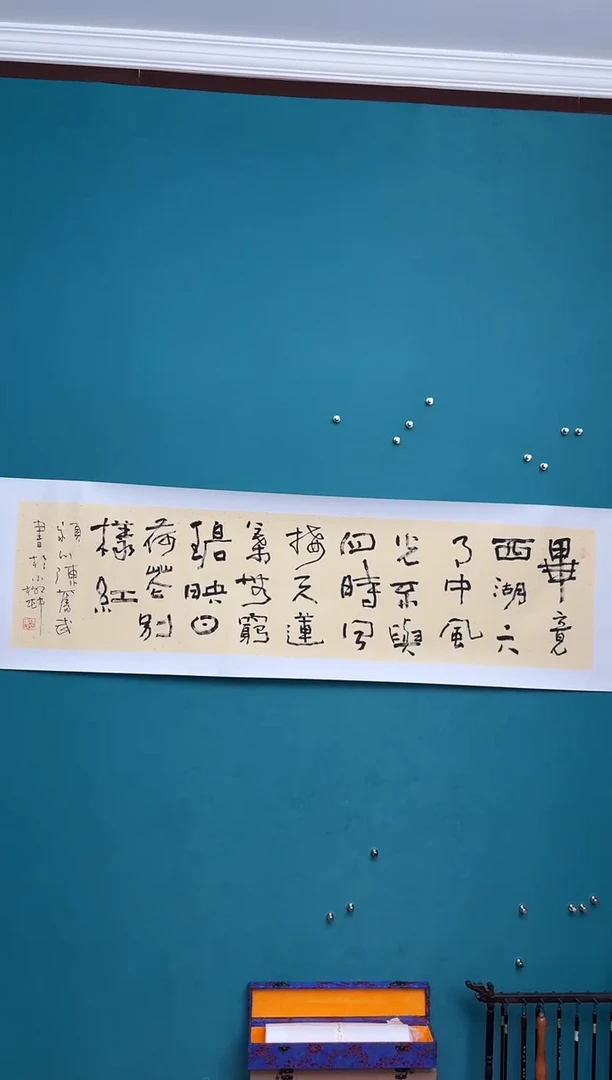 畢竟
西湖六
月中風
光不與
四時同
接天蓮
葉無窮
碧映日
荷花別
樣紅
陳奮武
書於小